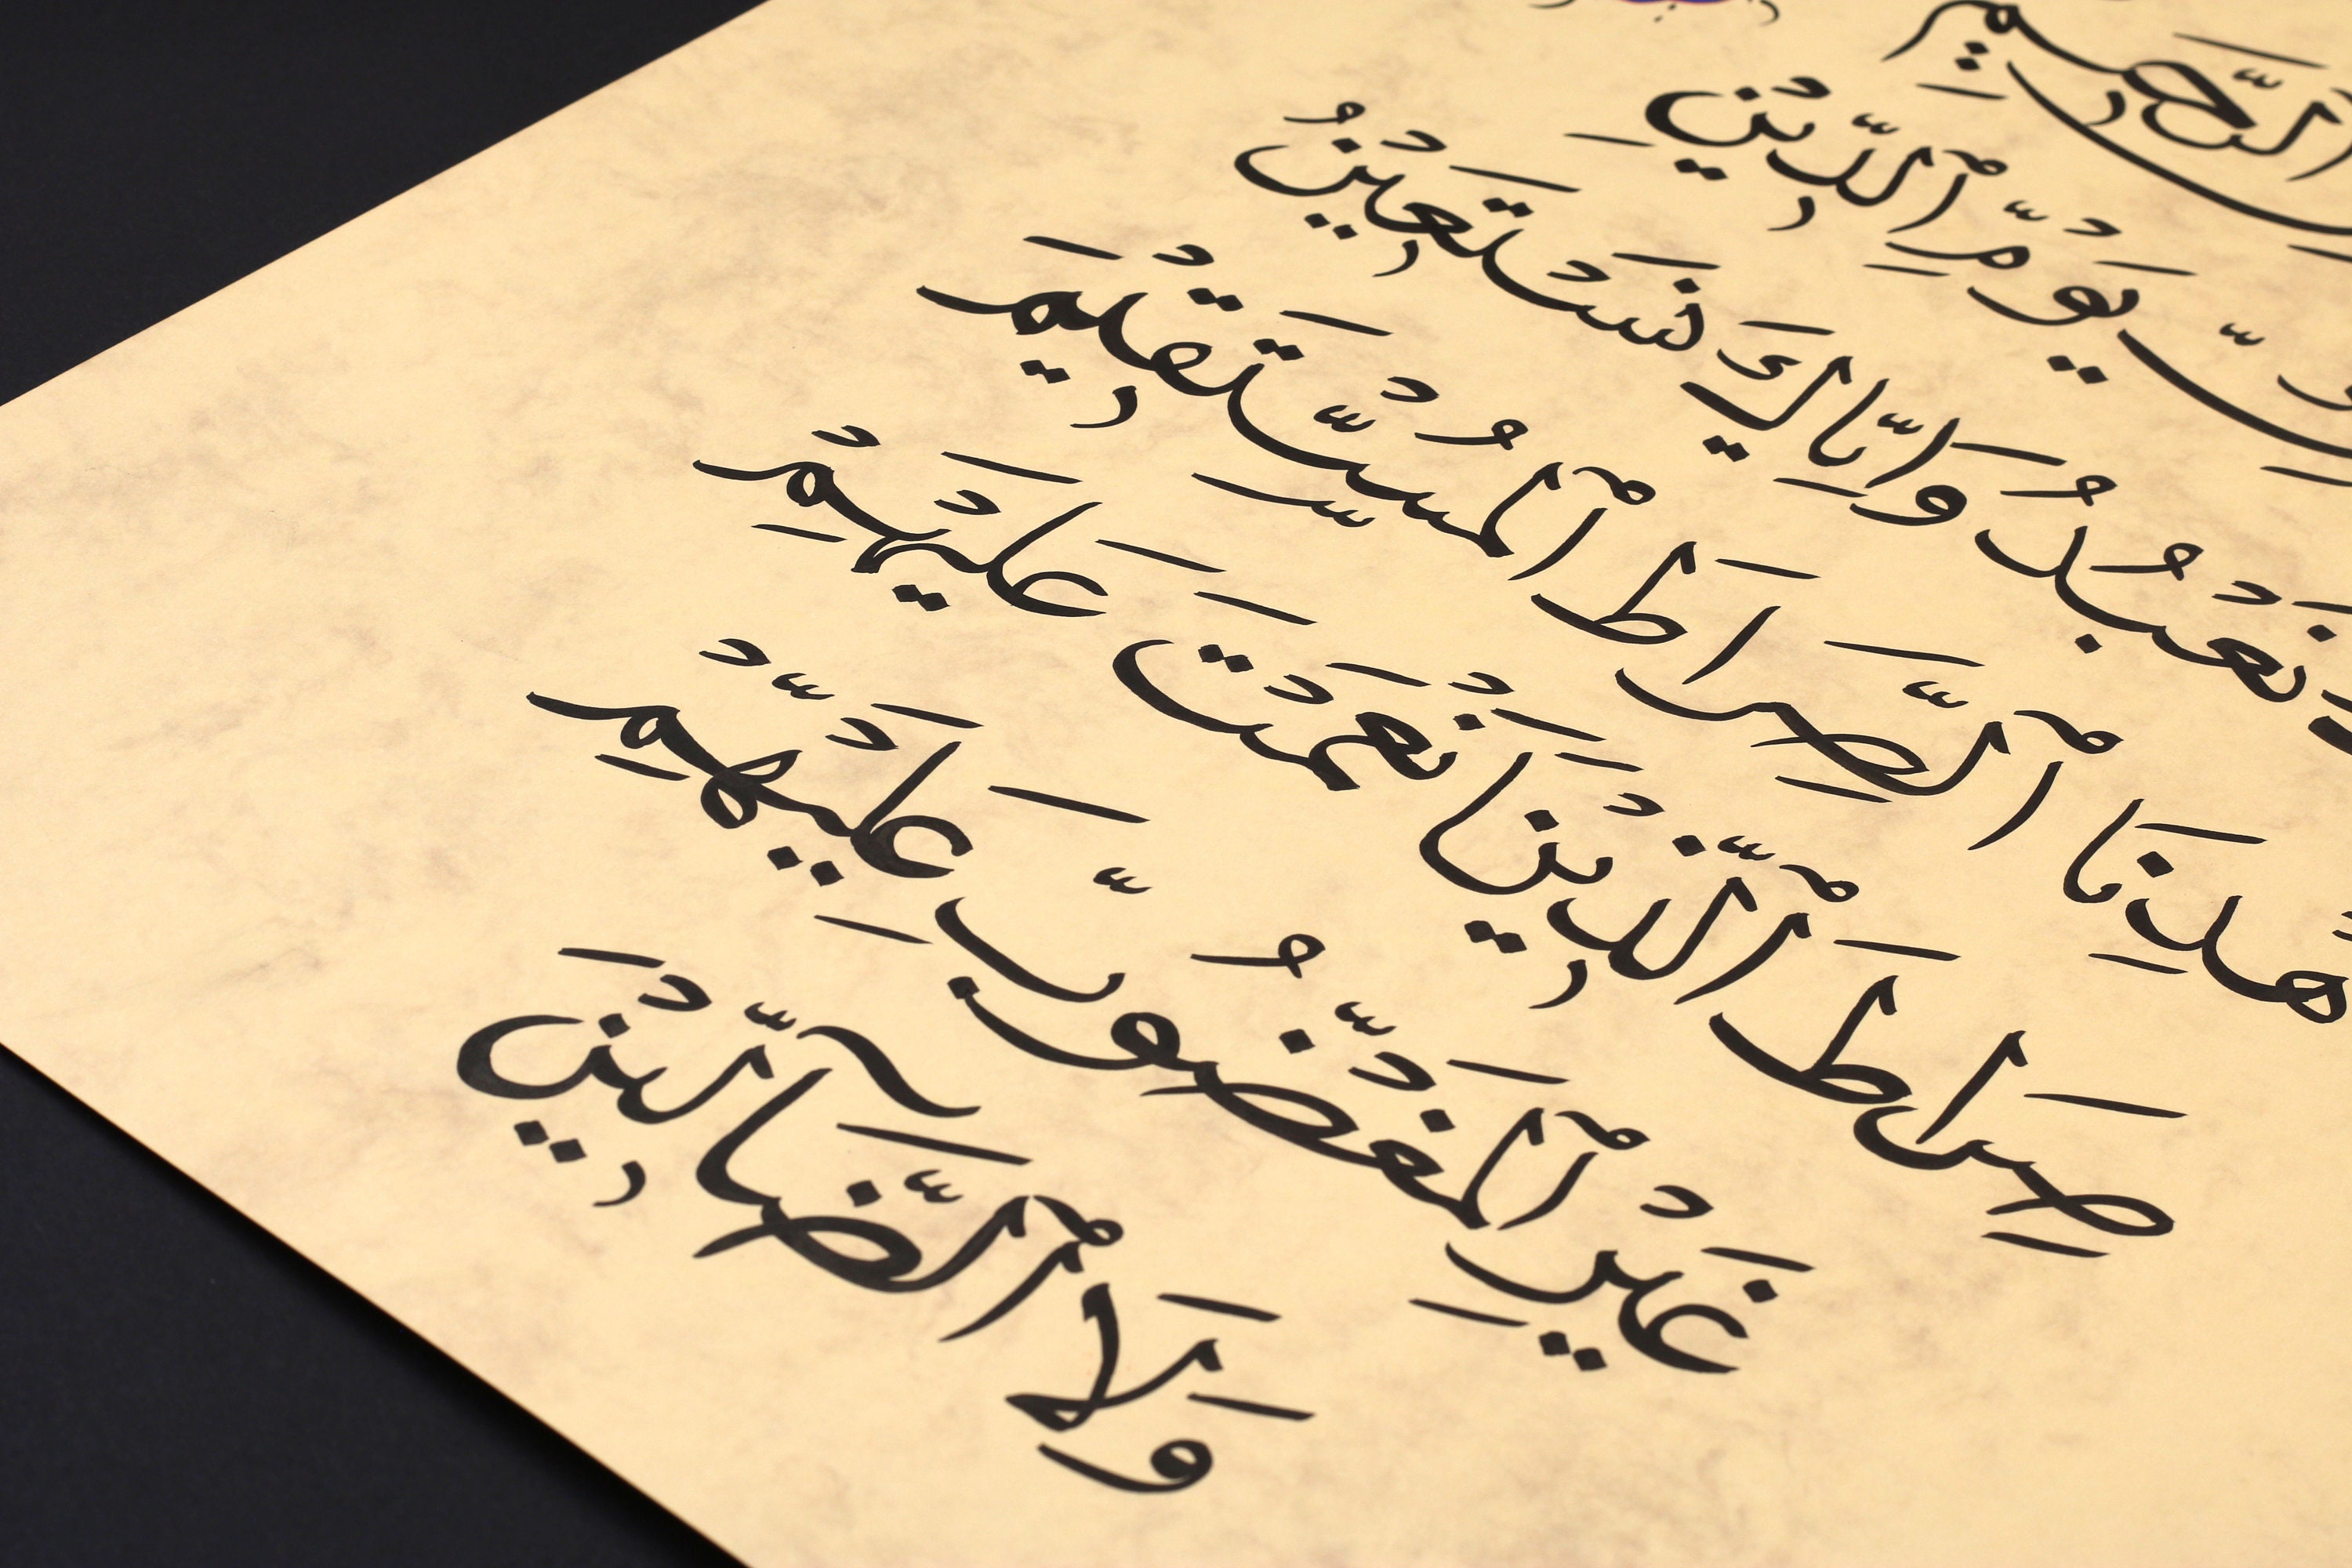 ٱلرَّحِيمِ
يَوْمِ ٱلدِّيْنِ
نَعْبُدُ وَاِيَّاكَ نَسْتَعِيْنُ
هْدِنَا ٱلصِّرَاطَ ٱلْمُسْتَقِيْمَ
صِرَاطَ ٱلَّذِيْنَ اَنْعَمْتَ عَلَيْهِمْ
غَيْرِ ٱلْمَغْضُوْبِ عَلَيْهِمْ
وَلَا ٱلضَّآلِّيْنَ